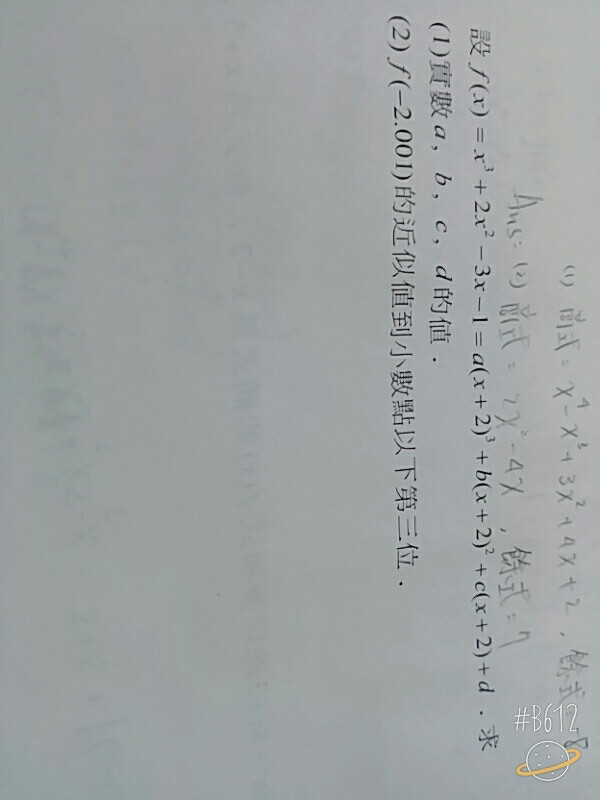 (1) 商式 = x⁴ - x³ + 3x² + 4x + 2 , 餘式 = -8
Ans: (2) 商式 = 2x² - 4x , 餘式 = 7
設 f(x) = x³ + 2x² - 3x - 1 = a(x+2)³ + b(x+2)² + c(x+2) + d . 求
(1)實數 a , b , c , d 的值 .
(2) f(-2.001)的近似值到小數點以下第三位 .
#B612